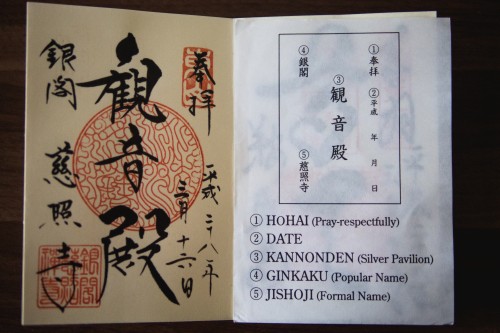 奉拝
平成二八年
三月十六日
観音殿
銀閣 慈照寺
①奉拝 ②平成 年 月 日
③観音殿
④銀閣 ⑤慈照寺
① HOHAI (Pray-respectfully)
② DATE
③ KANNONDEN (Silver Pavilion)
④ GINKAKU (Popular Name)
⑤ JISHOJI (Formal Name)